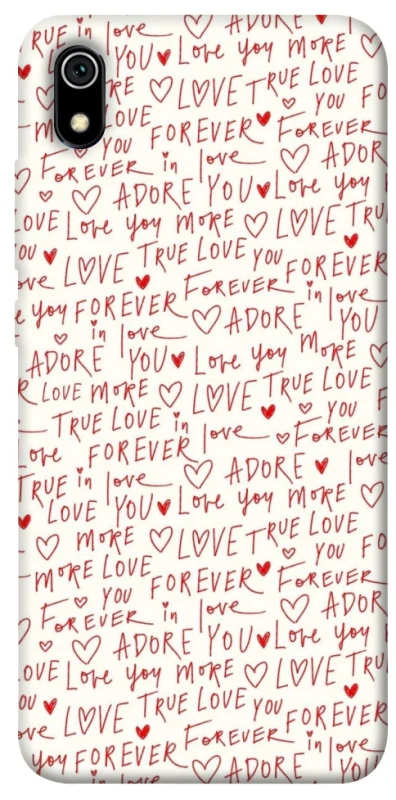 RUE in love ADORE
YOU Love you MORE
LOVE TRUE LOVE
MORE LOVE YOU
FOREVER FOREVER
FOREVER in love ADOR
ADORE YOU Love you
OVE Love you MORE LOVE TRU
OU LOVE TRUE LOVE YOU FOREVER
ove FOREVER in love
you FOREVER ADORE YOU
in love
ADORE YOU Love you MORE
LOVE MORE LOVE TRUE LOVE
TRUE LOVE in love YOU
ove FOREVER FOREVER
TRUE in love ADORE love
LOVE YOU Love you MORE
MORE LOVE TRUE LOVE
MORE LOVE YOU FO
FOREVER FOREVER
FOREVER in love ADOR
ADORE YOU Love you
OVE Love you MORE LOVE TRU
OU LOVE TRUE LOVE YOU FOREVER
ove FOREVER in love
you FOREVER ADORE YOU
in love